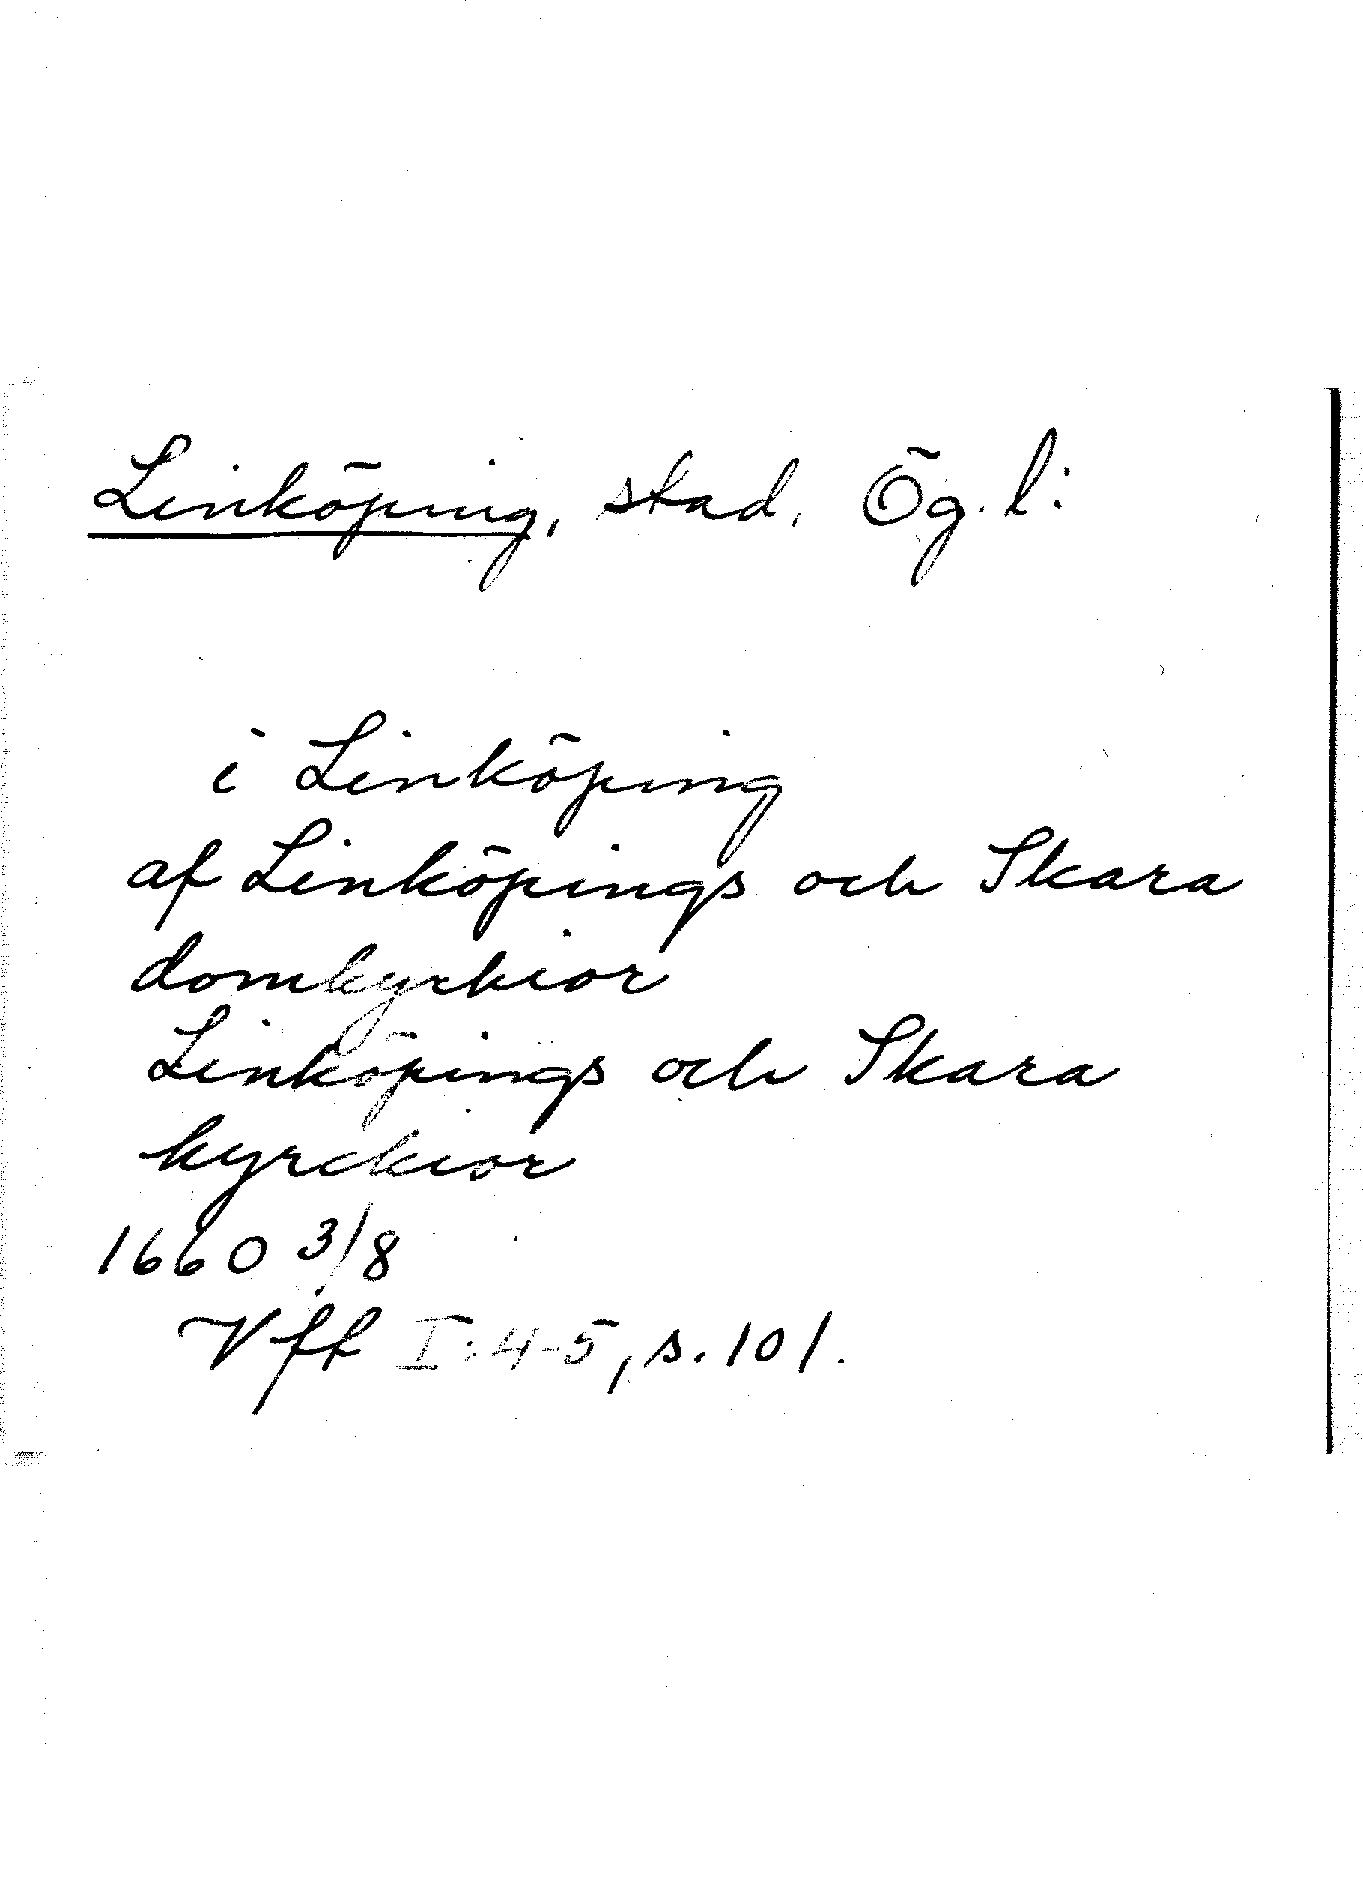 Linköping, stad, Ög. l:
i Linköping
af Linköpings och Skara
domkyrkior
Linköpings och Skara
kyrckior
1660 3/8
Vff I:4-5, s. 101.